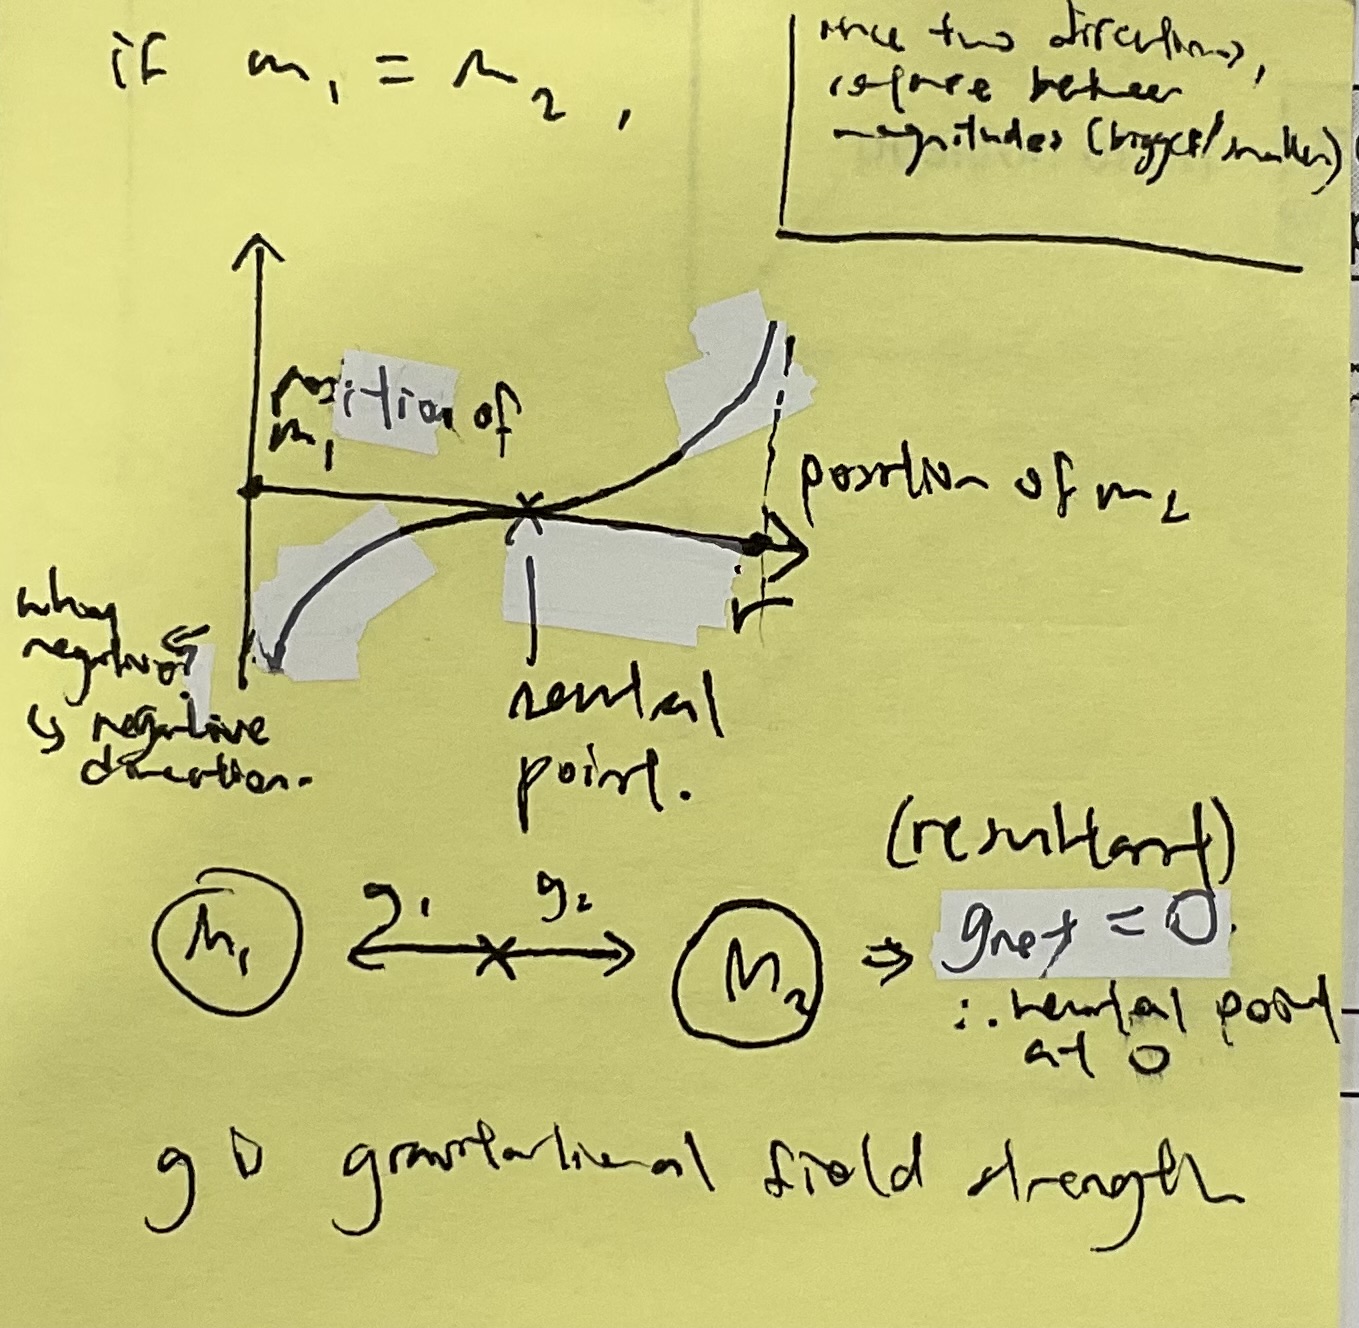 if m₁ = m₂ ,
since two directions,
compare between
magnitudes (bigger/smaller)
position of
m₁
position of m₂
r
why
negative?
↳ negative
direction.
neutral
point.
(resultant)
M₁ g₁ g₂ M₂ ⇒ gnet = 0.
∴ neutral point
at 0
g D gravitational field strength